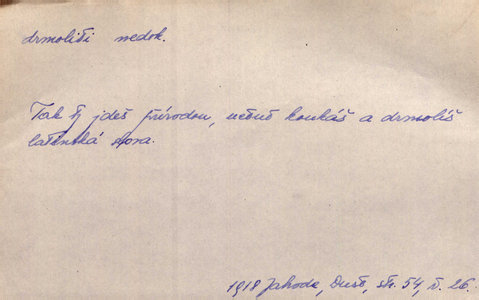 drmoliti nedok.
Tak ty jdeš přírodou, učeně koukáš a drmolíš
latinská slova.
1918 Jahoda, Duše, str. 54, ř. 26.